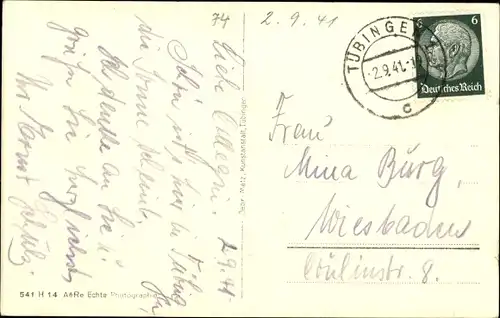 74
2.9.41
TÜBINGEN
-2.9.41.-1
c
6
Deutsches Reich
Liebe Collegin! 2.9.41
Schön ist's hier in Tübingen,
die Sonne scheint.
Ich denke an Sie u.
grüße Sie herzlichst
Ihr
Gebr. Metz, Kunstanstalt, Tübingen
Frau
Mina Burg,
Wiesbaden
Coulinstr. 8.
541 H 14 A&Re Echte Photographie